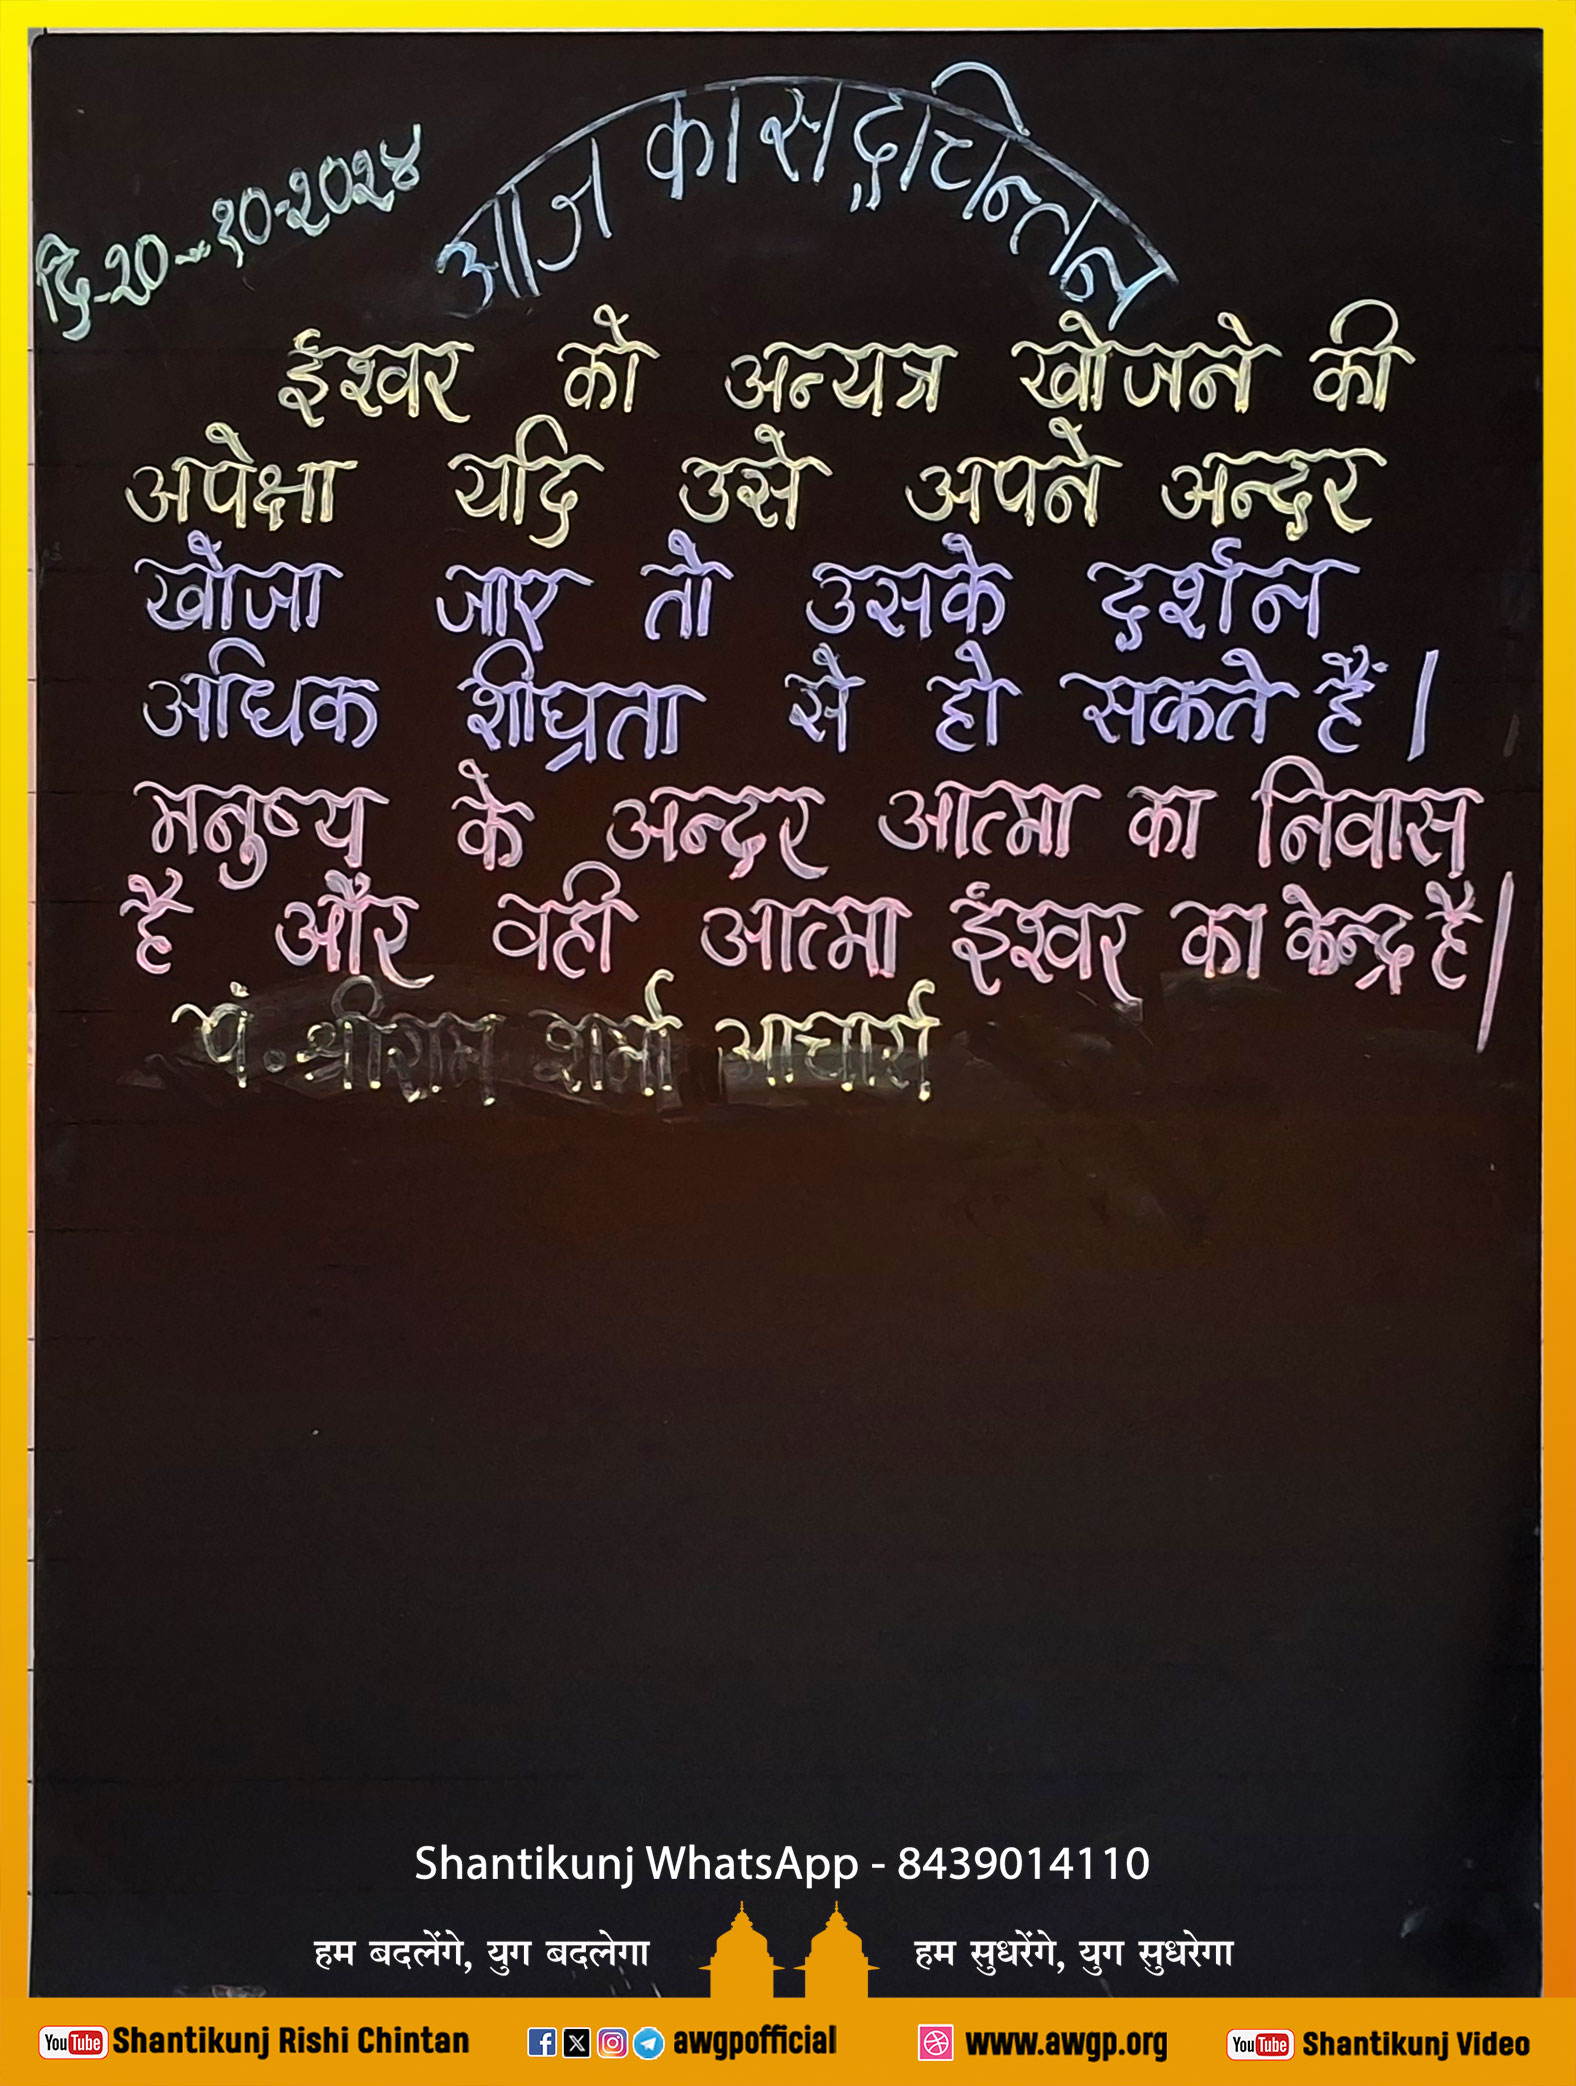 आज का सद्चिन्तन
दि-२०-१०-२०२४
ईश्वर को अन्यत्र खोजने की
अपेक्षा यदि उसे अपने अन्दर
खोजा जाए तो उसके दर्शन
अधिक शीघ्रता से हो सकते हैं।
मनुष्य के अन्दर आत्मा का निवास
है और वही आत्मा ईश्वर का केन्द्र है।
पं. श्रीराम शर्मा आचार्य
Shantikunj WhatsApp - 8439014110
हम बदलेंगे, युग बदलेगा
हम सुधरेंगे, युग सुधरेगा
YouTube Shantikunj Rishi Chintan
awgpofficial
www.awgp.org
YouTube Shantikunj Video